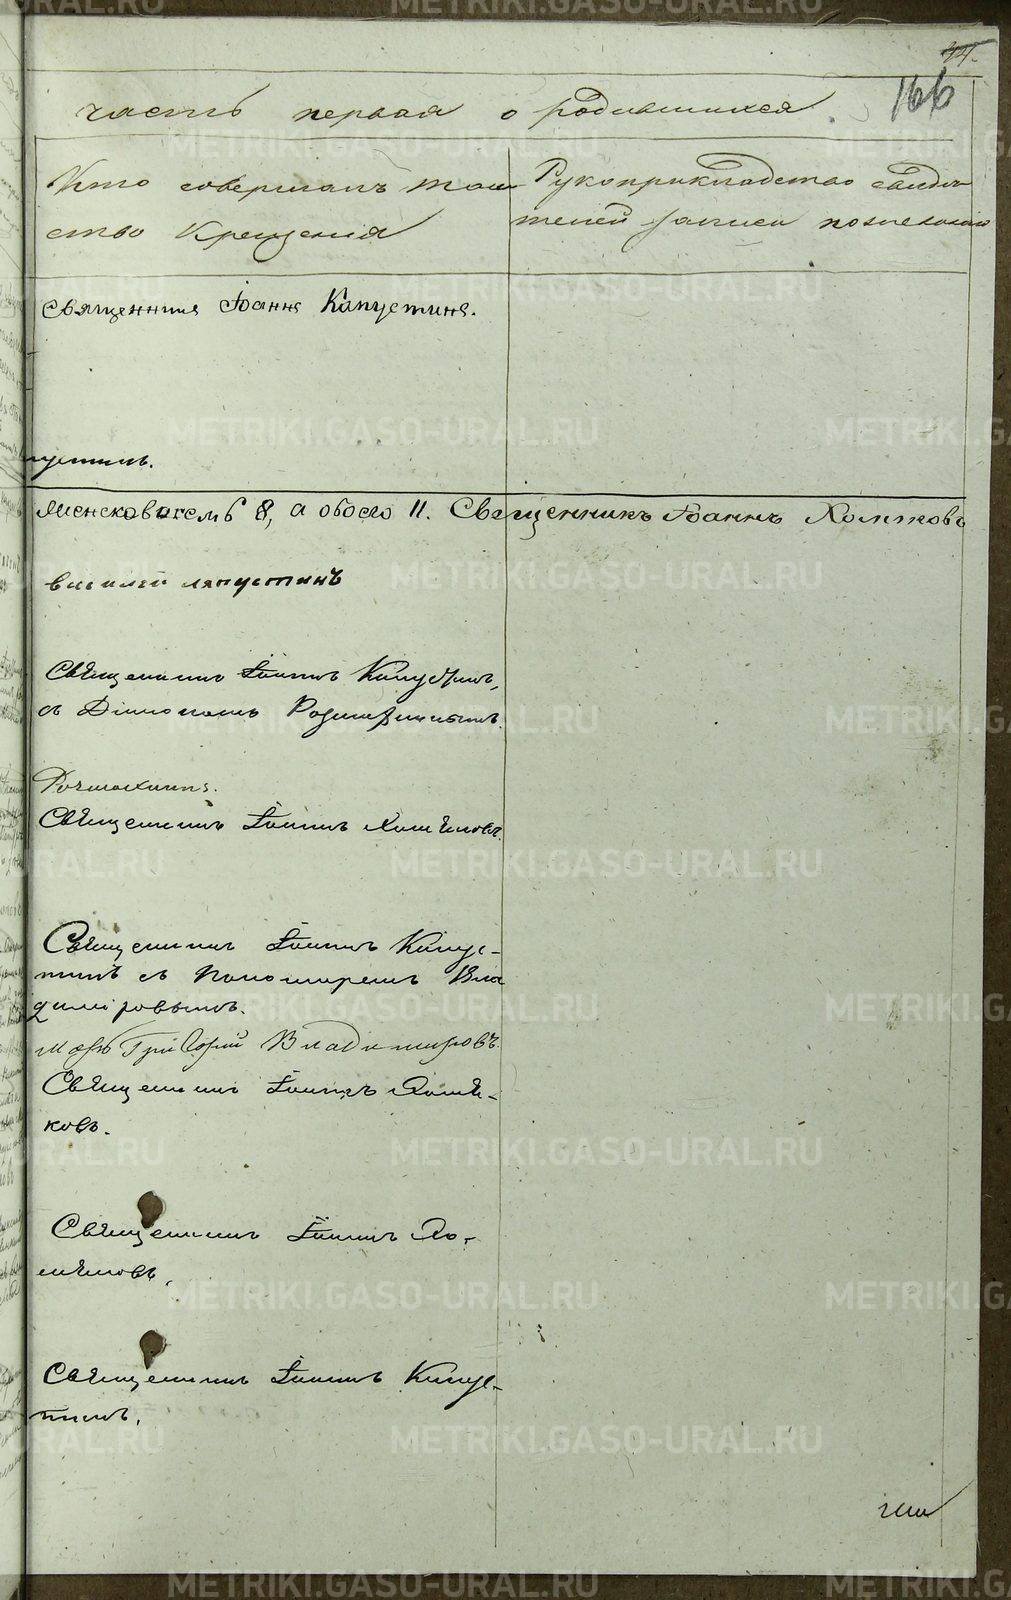 166
часть первая о родившихся.
Кто совершалъ таин
ство Крещения
Рукоприкладство свидѣ
телей записи по желанию
Священникъ Іоаннъ Капустинъ.
пустинъ.
женскаго семь 8, а обоего 11. Священникъ Іоаннъ Хомяковъ
василей ляпустинъ
Священникъ Іоаннъ Капустинъ,
съ Діакономъ
Священникъ Іоаннъ Хомяковъ.
Священникъ Іоаннъ Капус-
тинъ съ Пономаремъ Вла
димировымъ.
Григорій Владимировъ.
Священникъ Іоаннъ Хомя-
ковъ.
Священникъ Іоаннъ Хо-
мяковъ.
Священникъ Іоаннъ Капус-
тинъ.
METRIKI.GASO-URAL.RU